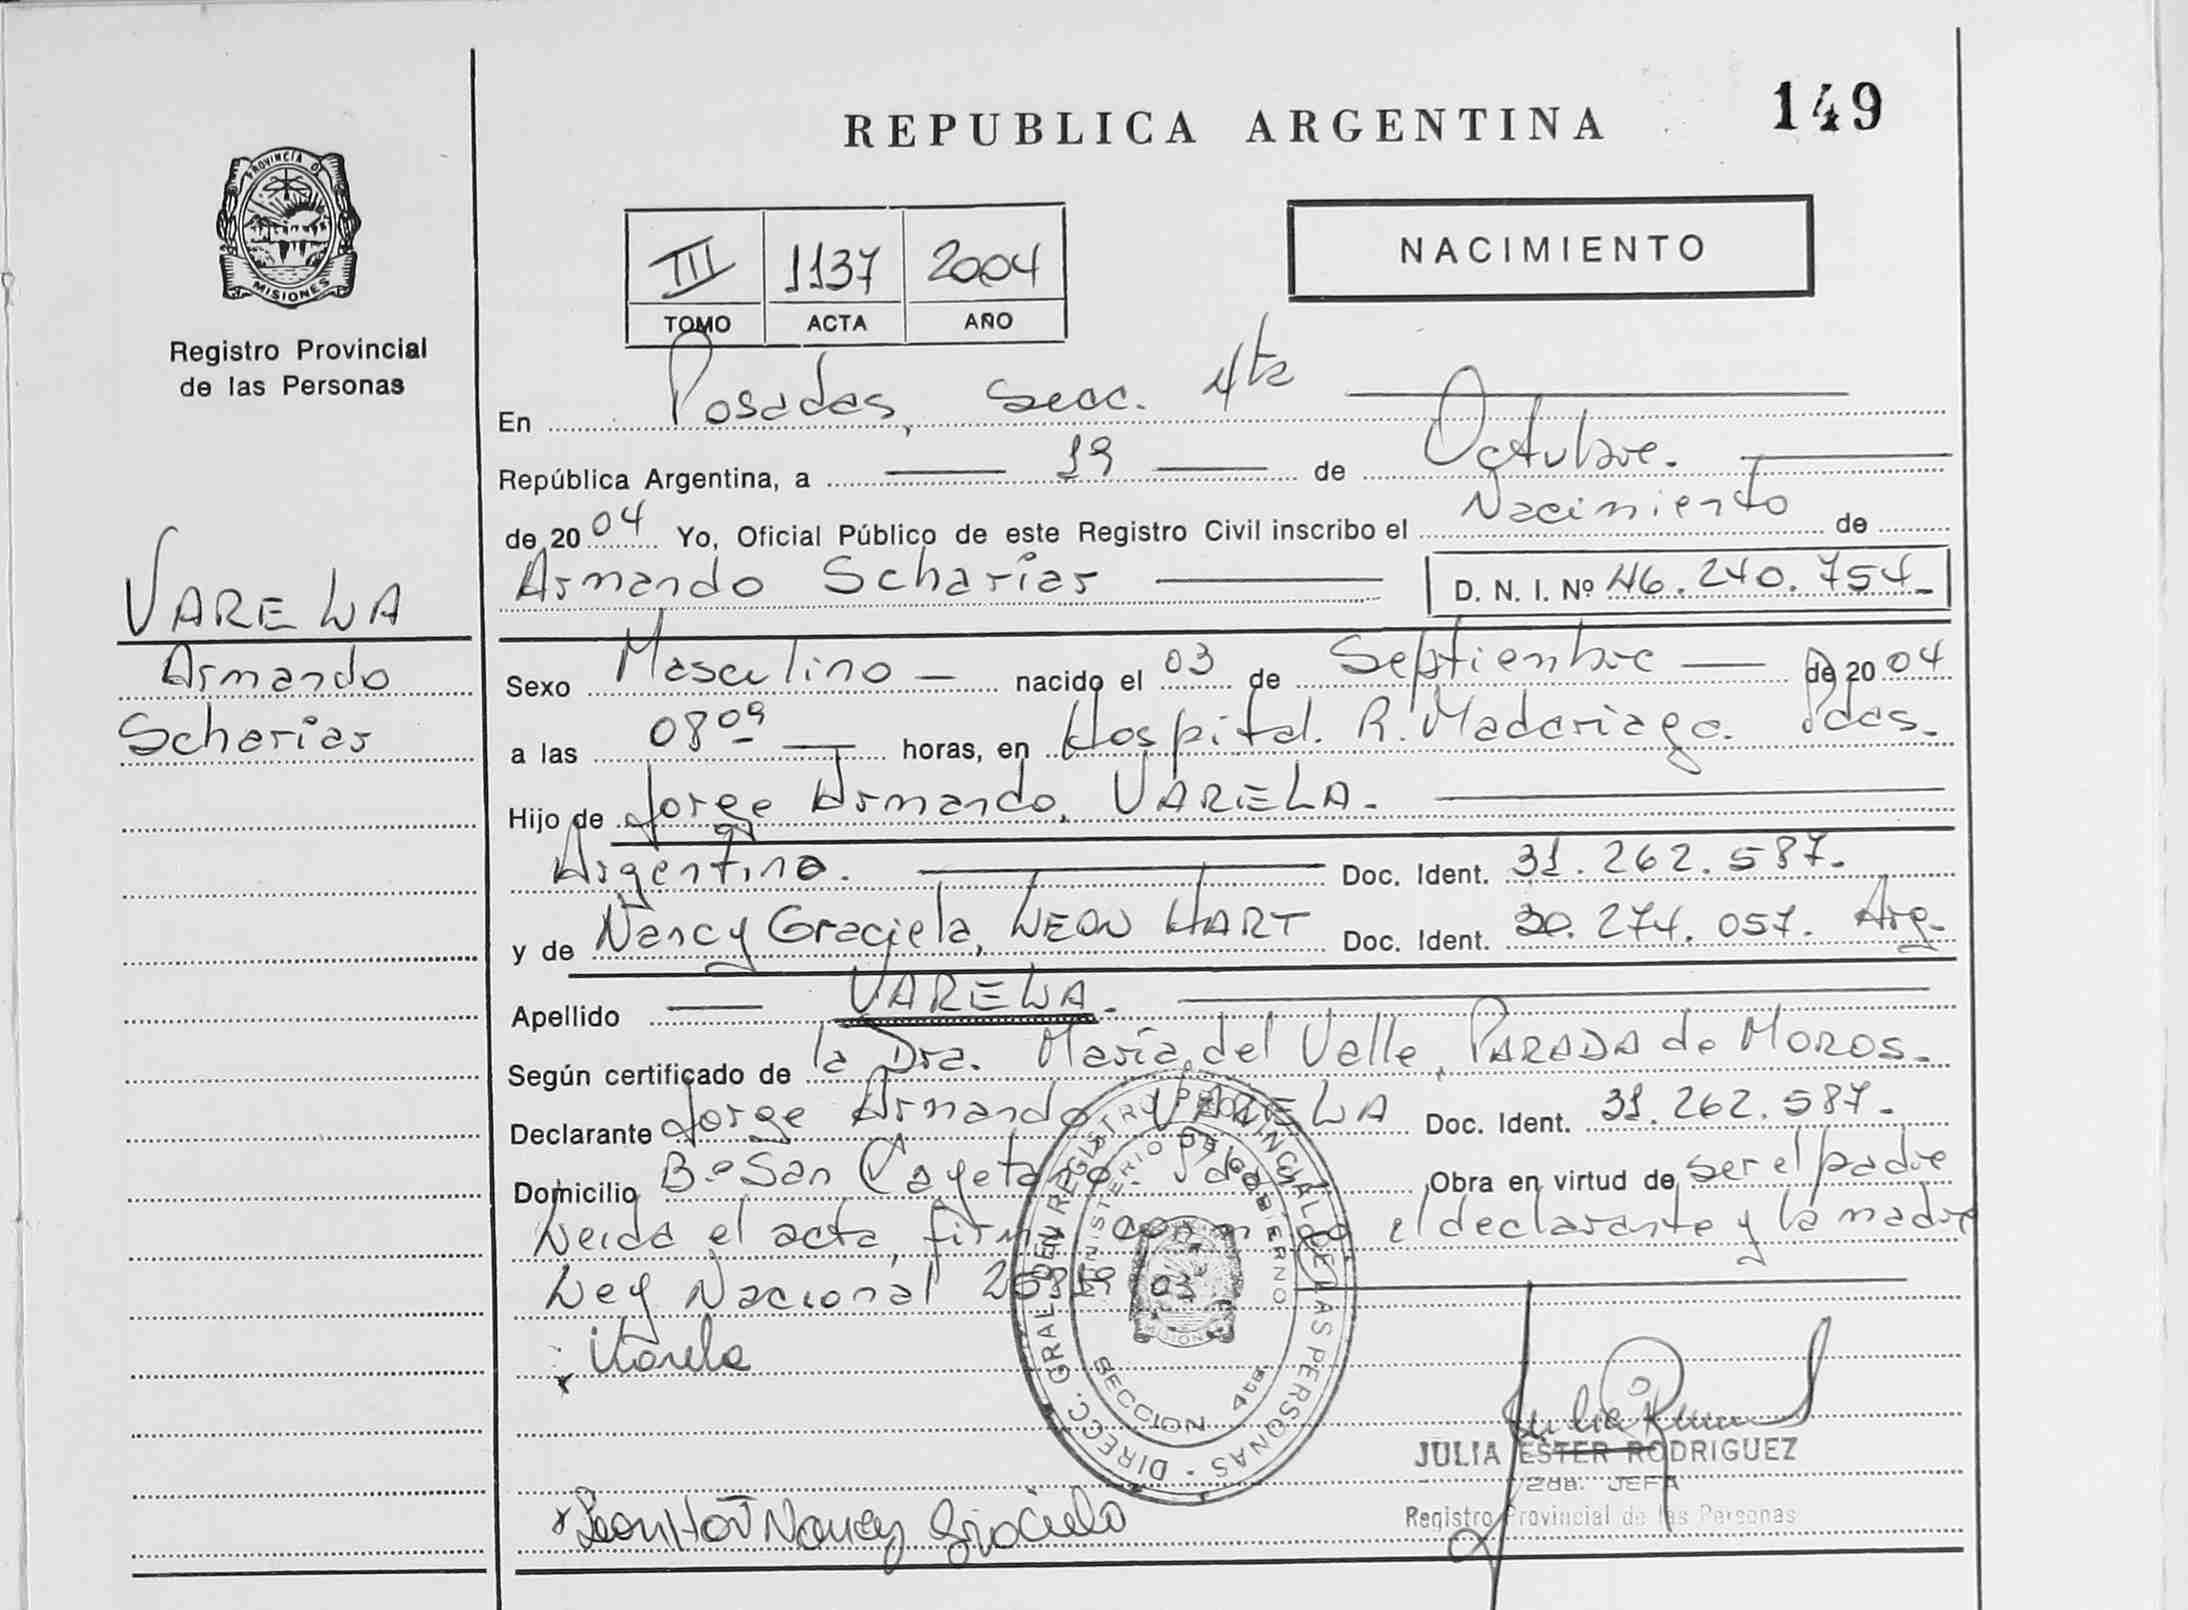 REPUBLICA ARGENTINA
149
PROVINCIA DE
MISIONES
Registro Provincial
de las Personas
III 1137 2004
TOMO ACTA AÑO
NACIMIENTO
En Posadas, Secc. 4ta
República Argentina, a 19 de Octubre.
de 2004 Yo, Oficial Público de este Registro Civil inscribo el Nacimiento de
Armando Scharias D. N. I. Nº 46.240.754-
VARELA
Armando
Scharias
Sexo Masculino - nacido el 03 de Septiembre de 2004
a las 08 09 horas, en Hospital. R. Madariaga. Pdas.
Hijo de Jorge Armando, VARELA.
Argentino. Doc. Ident. 31.262.587.
y de Nancy Graciela, LEON HART Doc. Ident. 30.274.057. Arg.
Apellido VARELA.
Según certificado de la Dra. María del Valle, PARADA de MOROS.
Declarante Jorge Armando VARELA Doc. Ident. 31.262.587.
Domicilio Bº San Cayetano. Pdas. Obra en virtud de ser el padre
Leida el acta, firma conmigo el declarante y la madre
Ley Nacional 25819/03
Varela
DIRECC. GRAL. DEL REGISTRO PROVINCIAL DE LAS PERSONAS
MINISTERIO DE GOBIERNO
MISIONES
SECCION 4ta.
JULIA ESTER RODRIGUEZ
2da. JEFA
Registro Provincial de las Personas
x Leon Hart Nancy Graciela